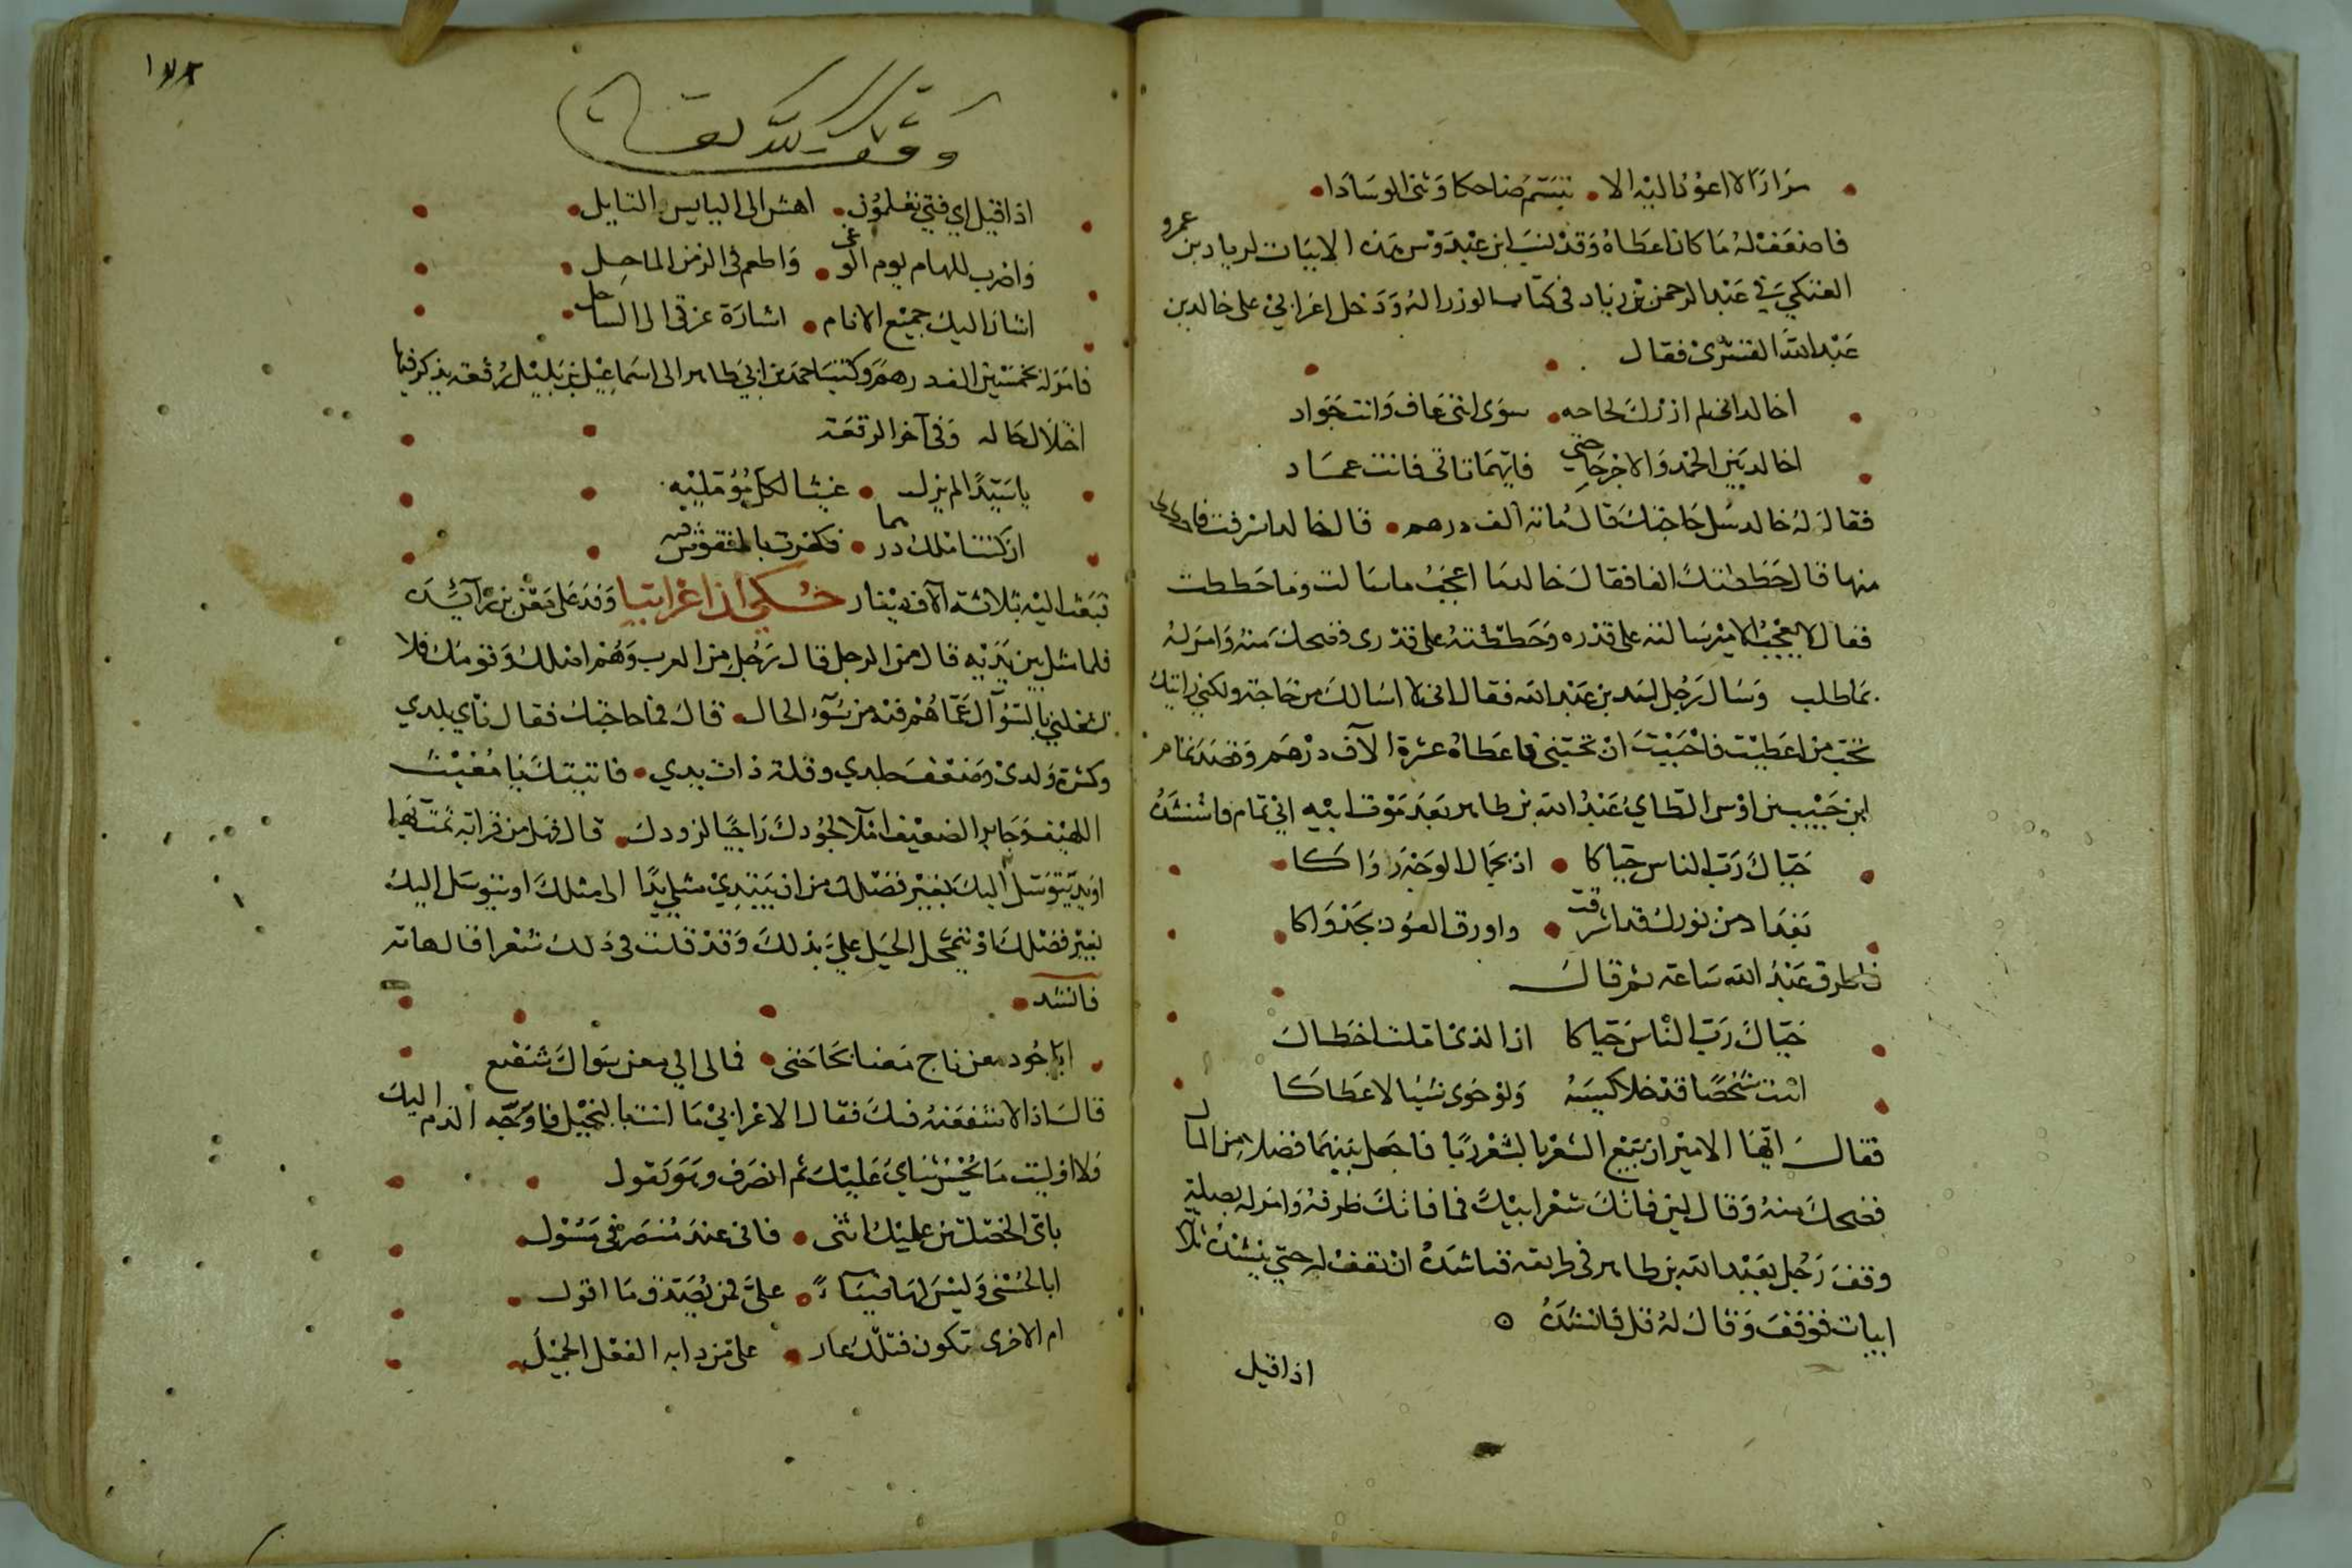 مرارا لا اعود اليه الا • تبسم ضاحكا وثنى الوسادا •
فاضعف له ما كان اعطاه وقد نسب ابن عبدوس هذه الابيات لزياد بن عمرو
العتكي في عبد الرحمن بن زياد في كتاب الوزراله ودخل اعرابي على خالد بن
عبد الله القسرى فقال
اخالد انى لم ازرك لحاجه • سوى اننى عاف وانت جواد
اخالد بين الحمد والاجر حاجتي فايهما تاتى فانت عماد
فقال له خالد سل حاجتك قال مائة الف درهم • قال خالد اسرفت
منها قال حططتك الفا فقال خالد ما اعجب ما سالت وما حططت
فقال لا يعجب الامير سالته على قدره وحططته على قدرى فضحك منه وامر له
بما طلب وسال رجل اسد بن عبد الله فقال انى لا اسالك من حاجة ولكني رايتك
تحب من اعطيت فاحببت ان تحبنى فاعطاه عشرة الاف درهم وقصد تمام
ابن حبيب بن اوس الطاي عبد الله بن طاهر بعد موت ابيه ابي تمام فانشده
حياك رب الناس حياكا • اذ بجمال الوجه رواكا
بغداد من نورك قد اشرقت • واورق العود بجدواكا
فاطرق عبد الله ساعة ثم قال
حياك رب الناس حياكا اذ الذى املت اخطاك
اتيت شخصا قد خلا كيسه ولو حوى شيا لاعطاكا
فقال ايها الامير ان بيع الشعر بالشعر ربا فاجعل بينهما فضلا من المال
فضحك منه وقال لين فاتك شعر ابيك فما فاتك ظرفه وامر له بصلة
وقف رجل بعبد الله بن طاهر فى طريقه فناشده ان تقف له حتى ينشده ثلاثة
ابيات فوقف وقال له قل فانشده
اذا قيل
١٧٨
وقف لله تعالى
اذا قيل اي فتى تعلمون • اهش الى البايس السايل •
واضرب للهام يوم الوغى • واطعم في الزمن الماحل •
اشار اليك جميع الانام • اشارة غرقى الى الساحل •
فامر له بخمسين الف درهم وكتب احمد بن ابي طاهر الى اسماعيل بن بلبل رقعة يذكر فيها
اختلال حاله وفى آخر الرقعة
يا سيدا لم يزل • غيثا لكل مؤمليه
ان كنت املك درهما • فكفرت بالمنقوش فيه
فبعث اليه بثلاثة آلاف دينار حكي ان اعرابيا وفد على معن بن زائدة
فلما مثل بين يديه قال من الرجل قال رجل من العرب وهم اصلك وقومك فلا
تشغلني بالسؤال عما هم فيه من سوء الحال • قال فما حاجتك فقال ناي بلدي
وكثرة ولدى وضعف جلدي وقلة ذات يدي • فاتيتك يا مغيث
اللهيف وجابر الضعيف املا لجودك راجيا لزودك • قال فهل من قرابة تمت بها
او يد تتوسل اليك بغير فضلك من ان يبتدي مثلي يدا الى مثلك او يتوسل اليك
بغير فضلك او يتمحل الحيل علي بذلك وقد قلت فى ذلك شعرا قال هاته
فانشد •
ايا جود معن ناج معنا بحاجتى • فما لى الى معن سواك شفيع
قال اذا لا تشفعنه فيك فقال الاعرابي ما انت بالبخيل فاوجه الذم اليك
ولا اوليت ما يحسن ثناي عليك ثم انصرف وهو يقول
باى الخصلتين عليك اثنى • فانى عند منصرفى مسول •
ابالحسنى وليس لها ضياء • علي فمن يصدق ما اقول •
ام الاخرى تكون فتلك عار • على من دابه الفعل الجميل •